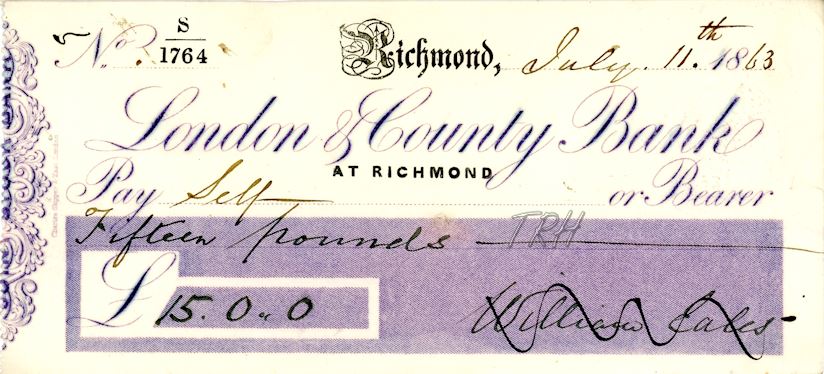 No. S/1764 Richmond, July. 11.th 1863
London & County Bank
AT RICHMOND
Pay Self or Bearer
Fifteen pounds TRH
£15.0"0 William